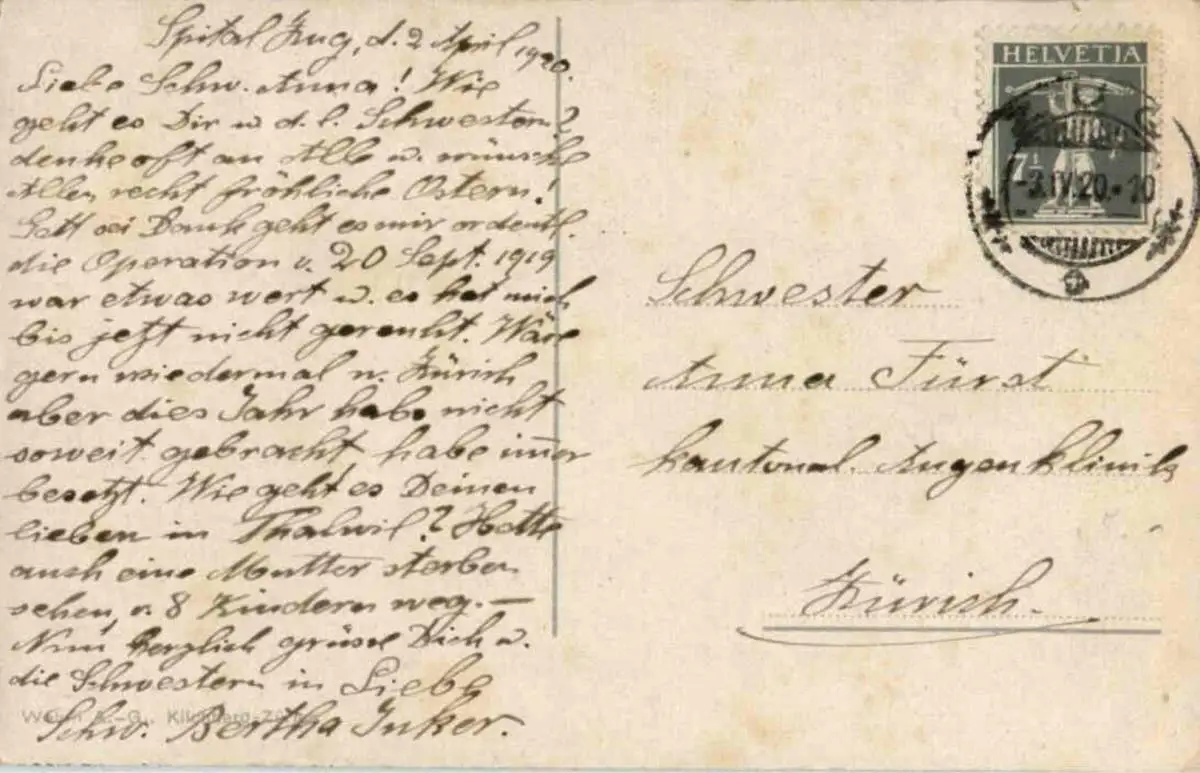 Spital Zug, d. 2 April 1920.
Liebe Schw. Anna! Wie
geht es Dir u. d. l. Schwestern?
denke oft an Alle u. wünsche
Allen recht fröhliche Ostern!
Gott sei Dank geht es mir ordentl.
die Operation v. 20 Sept. 1919
war etwas wert u. es hat mich
bis jetzt nicht gereuht. Wäre
gern wiedermal n. Zürich
aber dies Jahr habe nicht
soweit gebracht habe immer
besetzt. Wie geht es Deinen
lieben in Thalwil? Hatte
auch eine Mutter sterben
sehen, v. 8 Kindern weg. —
Nun herzlich grüsse Dich u.
die Schwestern in Liebe
Schw. Bertha Inker.
HELVETIA
7½
20.-10
Schwester
Anna Fürst
kantonal. Augenklinik
Zürich.